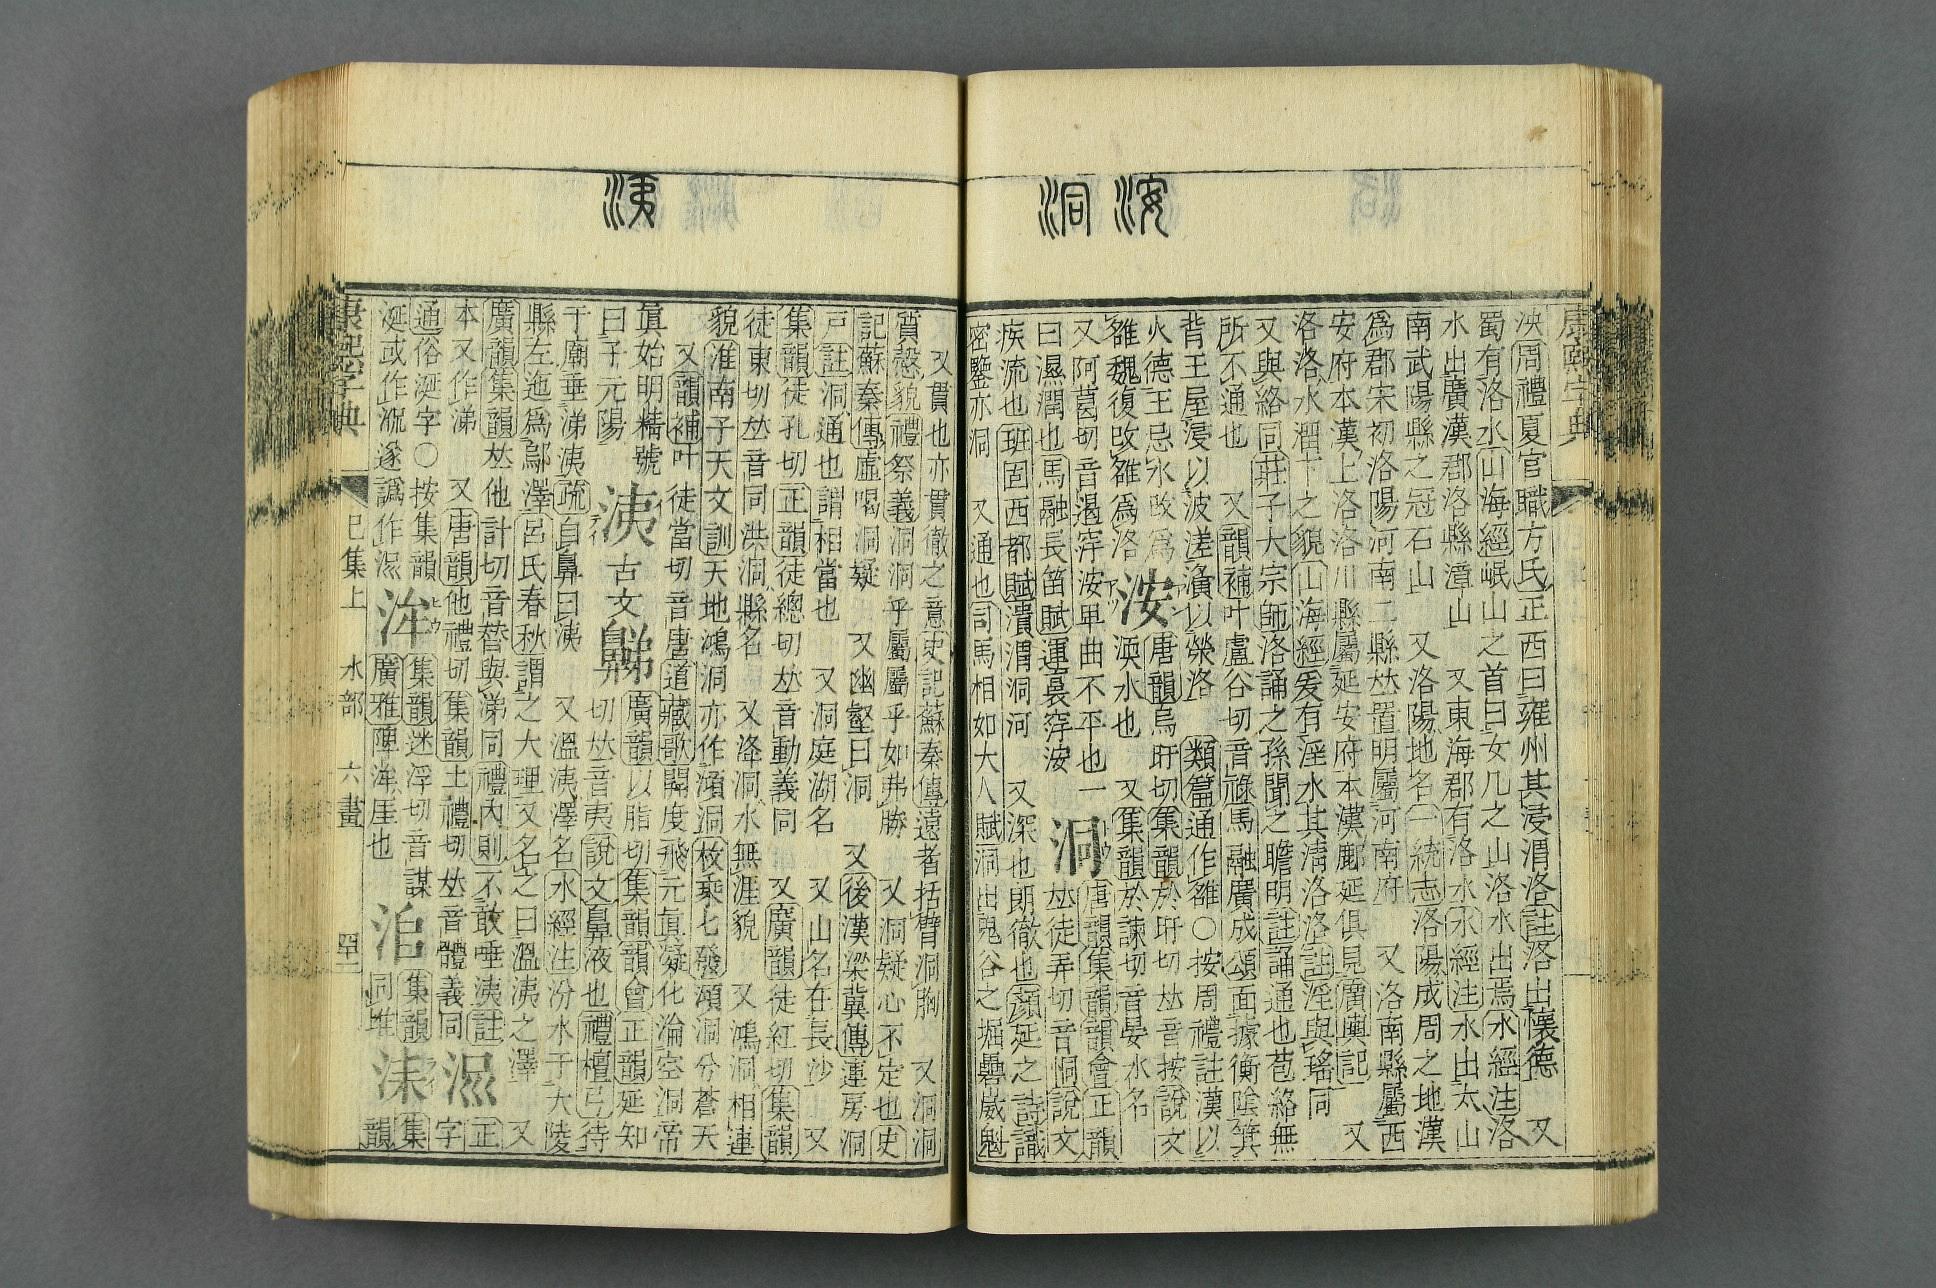 洝
洞
康熙字典
泱周禮夏官職方氏正西曰雍州其浸渭洛註洛出懷德 又
蜀有洛水山海經岷山之首曰女几之山洛水出焉水經注洛
水出廣漢郡洛縣漳山 又東海郡有洛水水經注水出太山
南武陽縣之冠石山 又洛陽地名一統志洛陽成周之地漢
爲郡宋初洛陽河南二縣𠀤置明屬河南府 又洛南縣屬西
安府本漢上洛洛川縣屬延安府本漢鄜延俱見廣輿記 又
洛洛水溜下之貌山海經爰有淫水其淸洛洛註淫與瑤同
又與絡同莊子大宗師洛誦之孫聞之瞻明註誦通也苞絡無
所不通也 又韻補叶盧谷切音祿馬融廣成頌面據衡陰箕
背王屋浸以波溠演以滎洛 類篇通作雒○按周禮註漢以
火德王忌水改爲
雒魏復改雒爲洛 洝 唐韻烏旰切集韻於旰切𠀤音按說文
洝水也 又集韻於諫切音晏水名
又阿葛切音遏穻洝卑曲不平也一
曰濕潤也馬融長笛賦運裛穻洝 洞 唐韻集韻韻會正韻
𠀤徒弄切音恫說文
疾流也班固西都賦潰渭洞河 又深也朗徹也顏延之詩識
密鑒亦洞 又通也司馬相如大人賦洞出鬼谷之堀礨崴魁
洟
又貫也亦貫徹之意史記蘇秦傳遠者括臂洞胸 又洞洞
質慤貌禮祭義洞洞乎屬屬乎如弗勝 又洞疑心不定也史
記蘇秦傳虛喝洞疑 又幽壑曰洞 又後漢梁冀傳連房洞
戸註洞通也謂相當也 又洞庭湖名 又山名在長沙 又
集韻徒孔切正韻徒總切𠀤音動義同 又廣韻徒紅切集韻
徒東切𠀤音同洪洞縣名 又洚洞水無涯貌 又鴻洞相連
貌淮南子天文訓天地鴻洞亦作澒洞枚乘七發澒洞兮蒼天
又韻補叶徒當切音唐道藏歌開度飛元眞凝化淪空洞帝
眞始明精號
曰子元陽 洟 古文鼼 廣韻以脂切集韻韻會正韻延知
切𠀤音夷說文鼻液也禮檀弓待
于廟垂涕洟疏自鼻曰洟 又溫洟澤名水經注汾水于大陵
縣左迤爲鄔澤呂氏春秋謂之大理又名之曰溫洟之澤 又
廣韻集韻𠀤他計切音替與涕同禮內則不敢唾洟註
本又作涕 又唐韻他禮切集韻土禮切𠀤音體義同 㳮 正
字
通俗涎字○按集韻
涎或作㳄遂譌作㳮 洠 集韻迷浮切音謀
廣雅陣洠厓也 洦 集韻
同堆 洡 集
韻
康熙字典
巳集上 水部 六畫